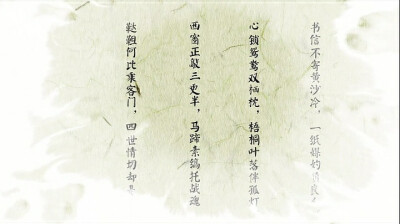 书信不寄黄沙冷，一纸媒妁
心锁鸳鸯双栖枕，梧桐叶落伴孤灯
西窗正敲三更半，马蹄素缟托战魂
鞑靼阿比乘客门，四世情切却